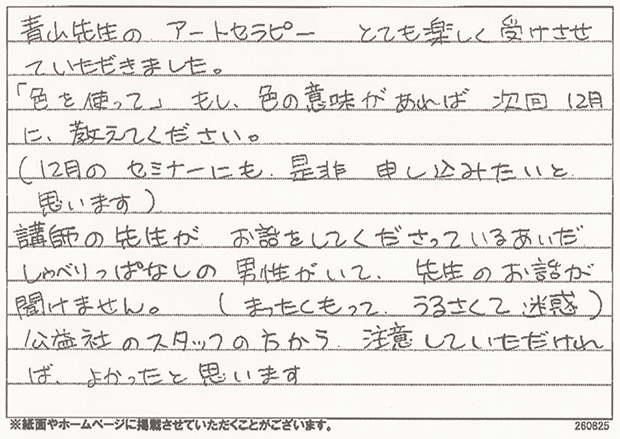 青山先生の アートセラピー とても楽しく受けさせ
ていただきました。
「色を使って」もし、色の意味があれば 次回12月
に、教えてください。
(12月の セミナーにも、是非 申し込みたいと
思います)
講師の先生が お話をしてくださっているあいだ
しゃべりっぱなしの 男性がいて、先生のお話が
聞けません。 (まったくもって、うるさくて 迷惑)
公益社のスタッフの方から、注意していただけれ
ば、よかったと思います
※紙面やホームページに掲載させていただくことがございます。
260825